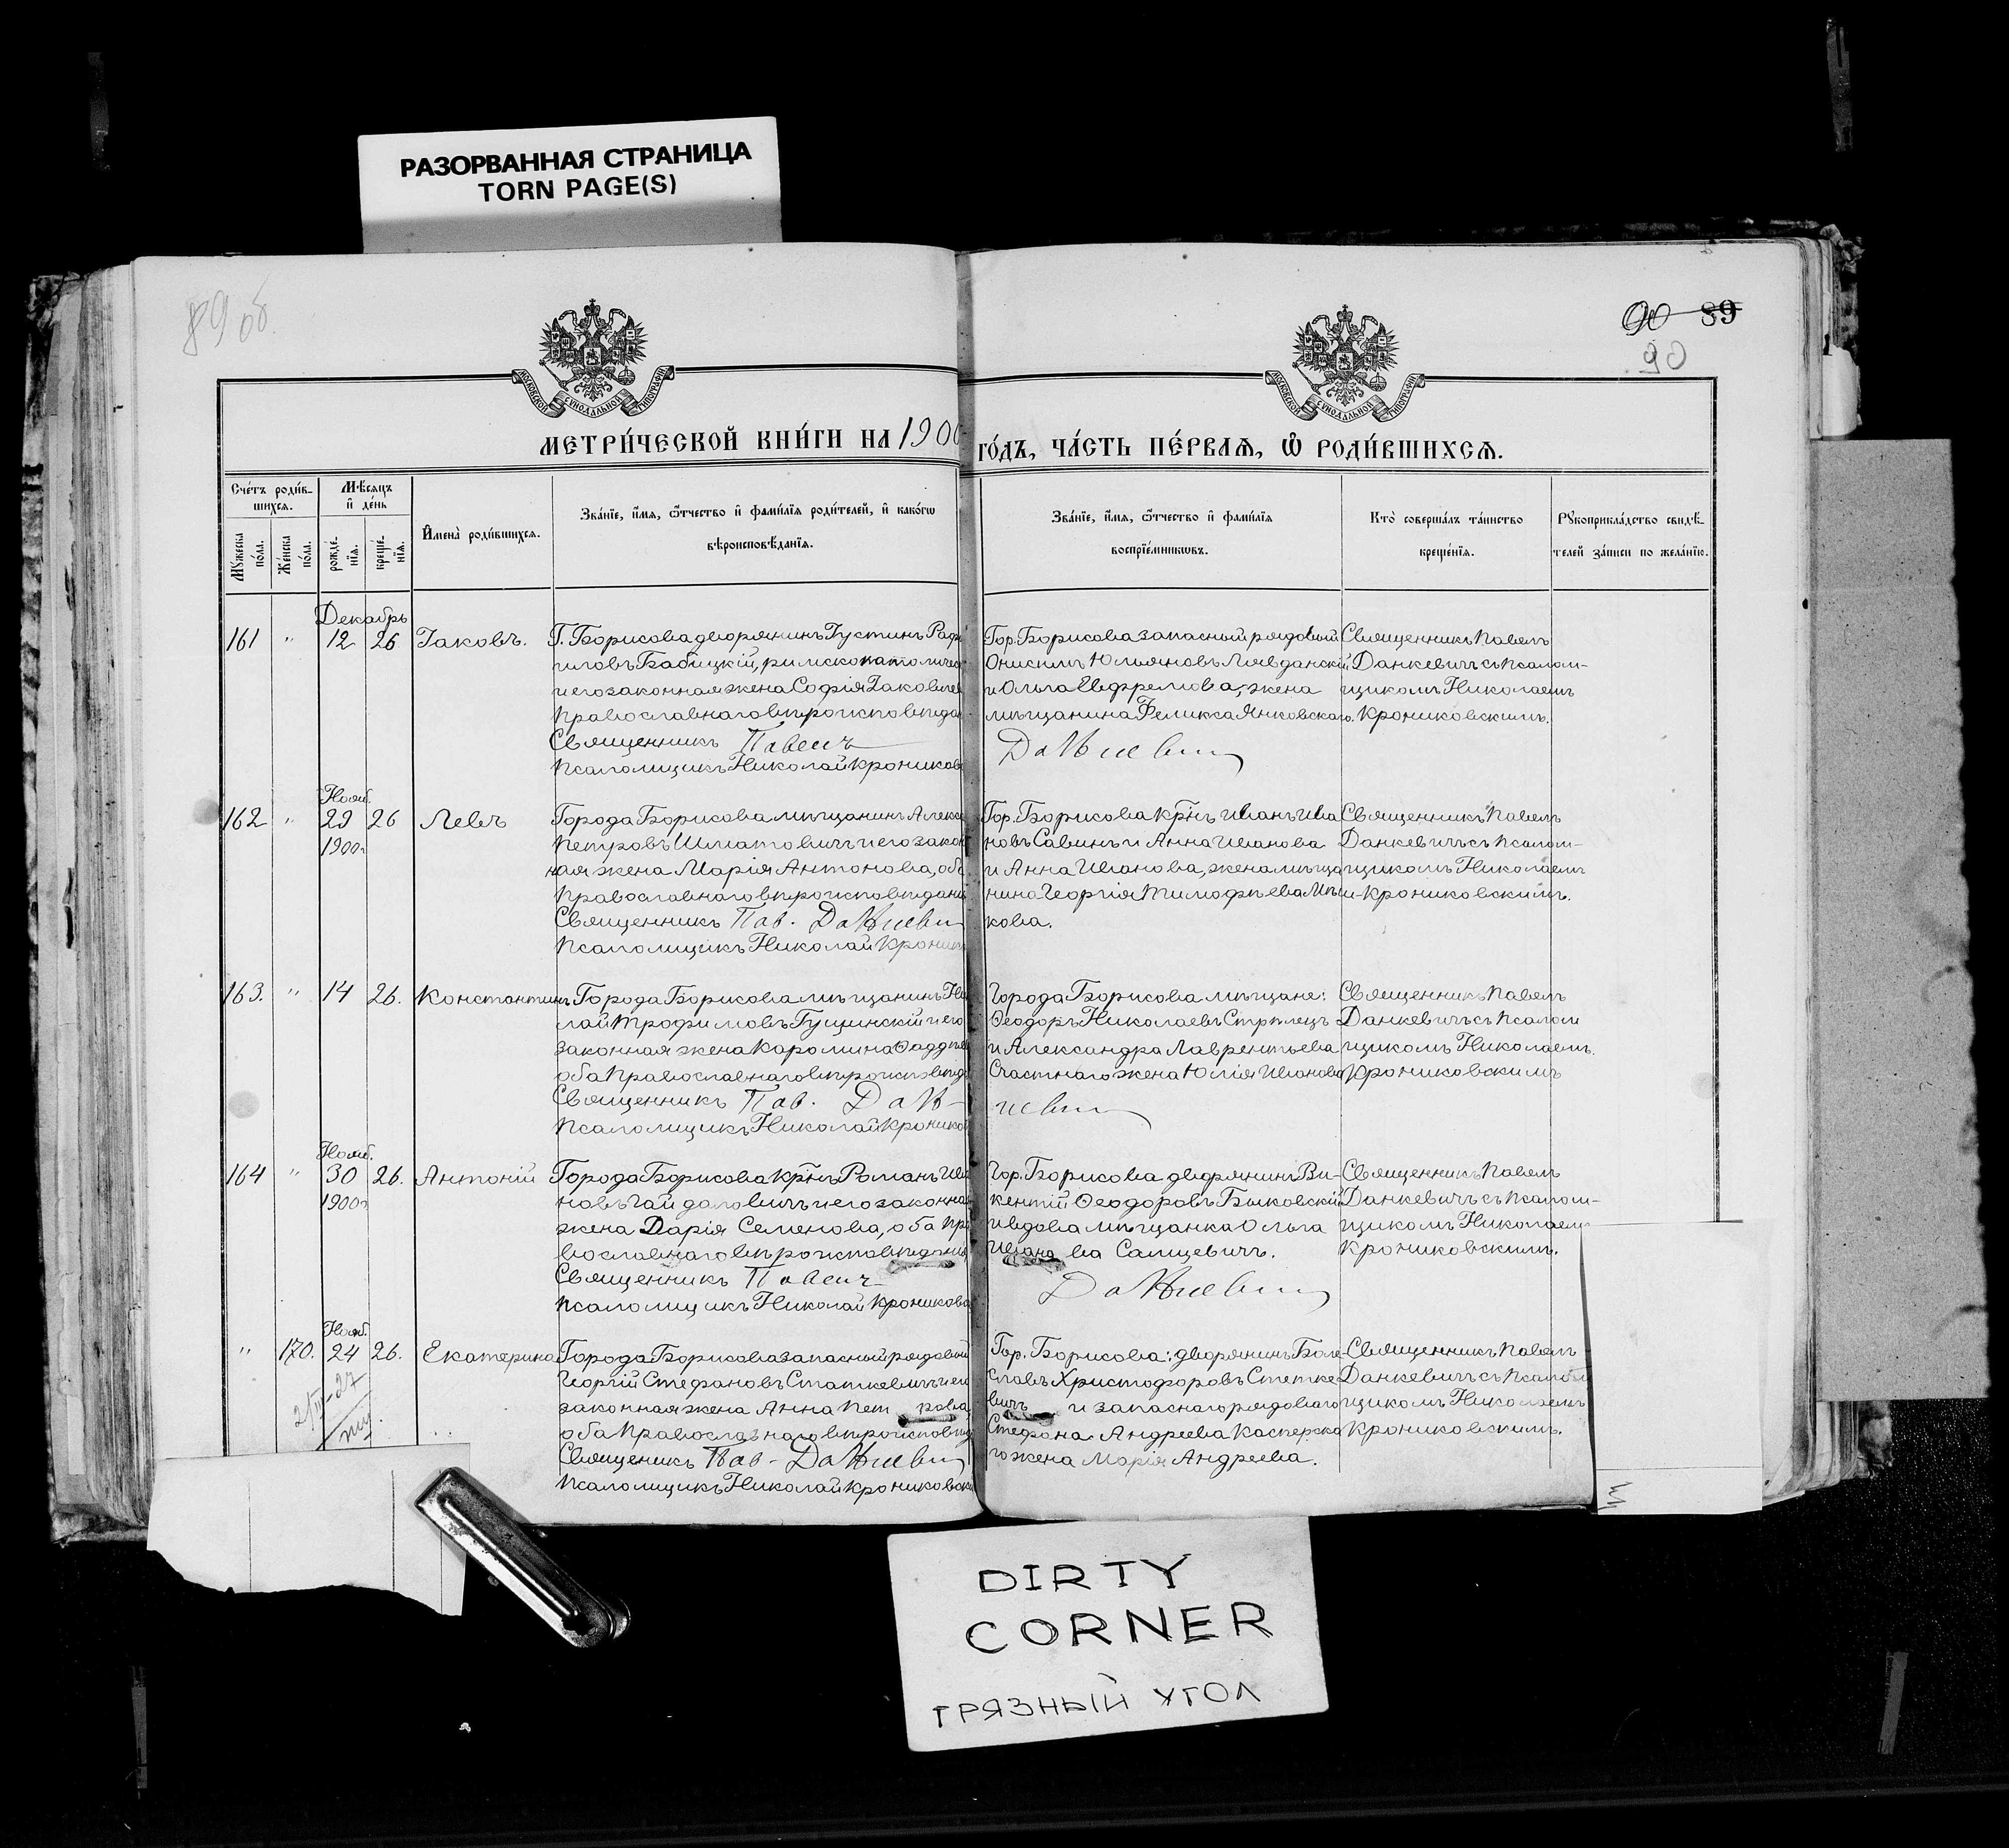 РАЗОРВАННАЯ СТРАНИЦА
TORN PAGE(S)
89 об.
90 89
90
МОСКОВСКОЙ СУНОДАЛЬНОЙ ТИПОГРАФІИ
МОСКОВСКОЙ СУНОДАЛЬНОЙ ТИПОГРАФІИ
МЕТРИ́ЧЕСКОЙ КНИ́ГИ НА 1900
ГО́ДЪ, ЧА́СТЬ ПЕ́РВАѦ, Ѿ РОДИ́ВШИХСѦ.
Сче́тъ роди́в-
шихсѧ.
Мꙋжеска по́ла.
Же́нска по́ла.
Мѣ́сѧцъ
и҆ де́нь
рожде́-
нїѧ.
креще́-
нїѧ.
И҆мена̀ роди́вшихсѧ.
Зва́нїе, и҆́мѧ, ѻ҆́тчество и҆ фами́лїѧ роди́телей, и҆ како́гѡ
вѣроисповѣ́данїѧ.
Зва́нїе, и҆́мѧ, ѻ҆́тчество и҆ фами́лїѧ
воспрїе́мникѡвъ.
Кто̀ соверша́лъ та́инство
креще́нїѧ.
Рꙋкоприкла́дство свидѣ́-
телей за́писи по жела́нїю.
Декабрь
161 " 12 26 Іаковъ.
Г. Борисова дворянинъ Густинъ Раф
иловъ Бабицкій, римскокатоличес
и его законная жена Софія Іаковлев
православнаго вѣроисповѣдан
Священникъ Павелъ
Псаломщикъ Николай Крониковс
Гор. Борисова запасный рядовый
Онисимъ Юліановъ Лявданскій
и Ольга Евфремова, жена
мѣщанина Феликса Янковскаго.
Данкевичъ
Священникъ Павелъ
Данкевичъ съ псалом-
щикомъ Николаемъ
Крониковскимъ.
Нояб.
162 " 29 26 Левъ
1900г
Города Борисова мѣщанинъ Алекс
Петровъ Шматовичъ и его закон
ная жена Марія Антонова, оба
православнаго вѣроисповѣдані
Священникъ Пав. Данкевич
Псаломщикъ Николай Кроник
Гор. Борисова крнъ Иванъ Ива
новъ Савинъ и Анна Иванова
и Анна Иванова, жена мѣща
нина Георгія Тимофѣева Мѣш
кова.
Священникъ Павелъ
Данкевичъ съ псалом-
щикомъ Николаемъ
Крониковскимъ.
163. " 14 26. Константинъ
Города Борисова мѣщанинъ Ни
лай Трофимовъ Гущинскій и его
законная жена Каролина Фаддѣев
оба православнаго вѣроисповѣд
Священникъ Пав. Дан-
Псаломщикъ Николай Кронико
Города Борисова мѣщане:
Феодоръ Николаевъ Стрѣлецъ
и Александра Лаврентьева
Счастнаго жена Юлія Иванова
кевич
Священникъ Павелъ
Данкевичъ съ псалом
щикомъ Николаемъ.
Крониковскимъ
Нояб.
164 " 30 26. Антоній
1900г
Города Борисова крнъ Романъ Ива
новъ Гайдаловичъ и его законная
жена Дарія Семенова, оба пра
вославнаго вѣроисповѣдані
Священникъ Павелъ
Псаломщикъ Николай Крониковс
Гор. Борисова дворянинъ Ви-
кентій Феодоровъ Быковскій
и вдова мѣщанка Ольга
Иванова Сапцевичъ.
Данкевич
Священникъ Павелъ
Данкевичъ съ псалом-
щикомъ Николаем
Крониковскимъ.
Нояб.
" 170. 24 26. Екатерина
Города Борисова запасный рядовой
Георгій Стефановъ Статкевичъ и его
законная жена Анна Петрова,
оба православнаго вѣроисповѣд
Священикъ Пав. Данкевич
Псаломщикъ Николай Крониковски
Гор. Борисова: дворянинъ Боле-
славъ Христофоровъ Стетке
вичъ и запаснаго рядоваго
Стефана Андреева Касперска
го жена Марія Андреева.
Священникъ Павелъ
Данкевичъ съ псалом
щикомъ Николаемъ
Крониковскимъ.
DIRTY
CORNER
ГРЯЗНЫЙ УГОЛ